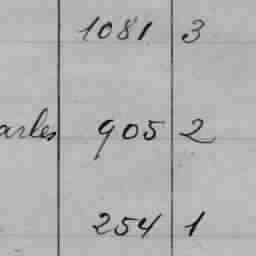 1081 3
arles 905 2
254 1